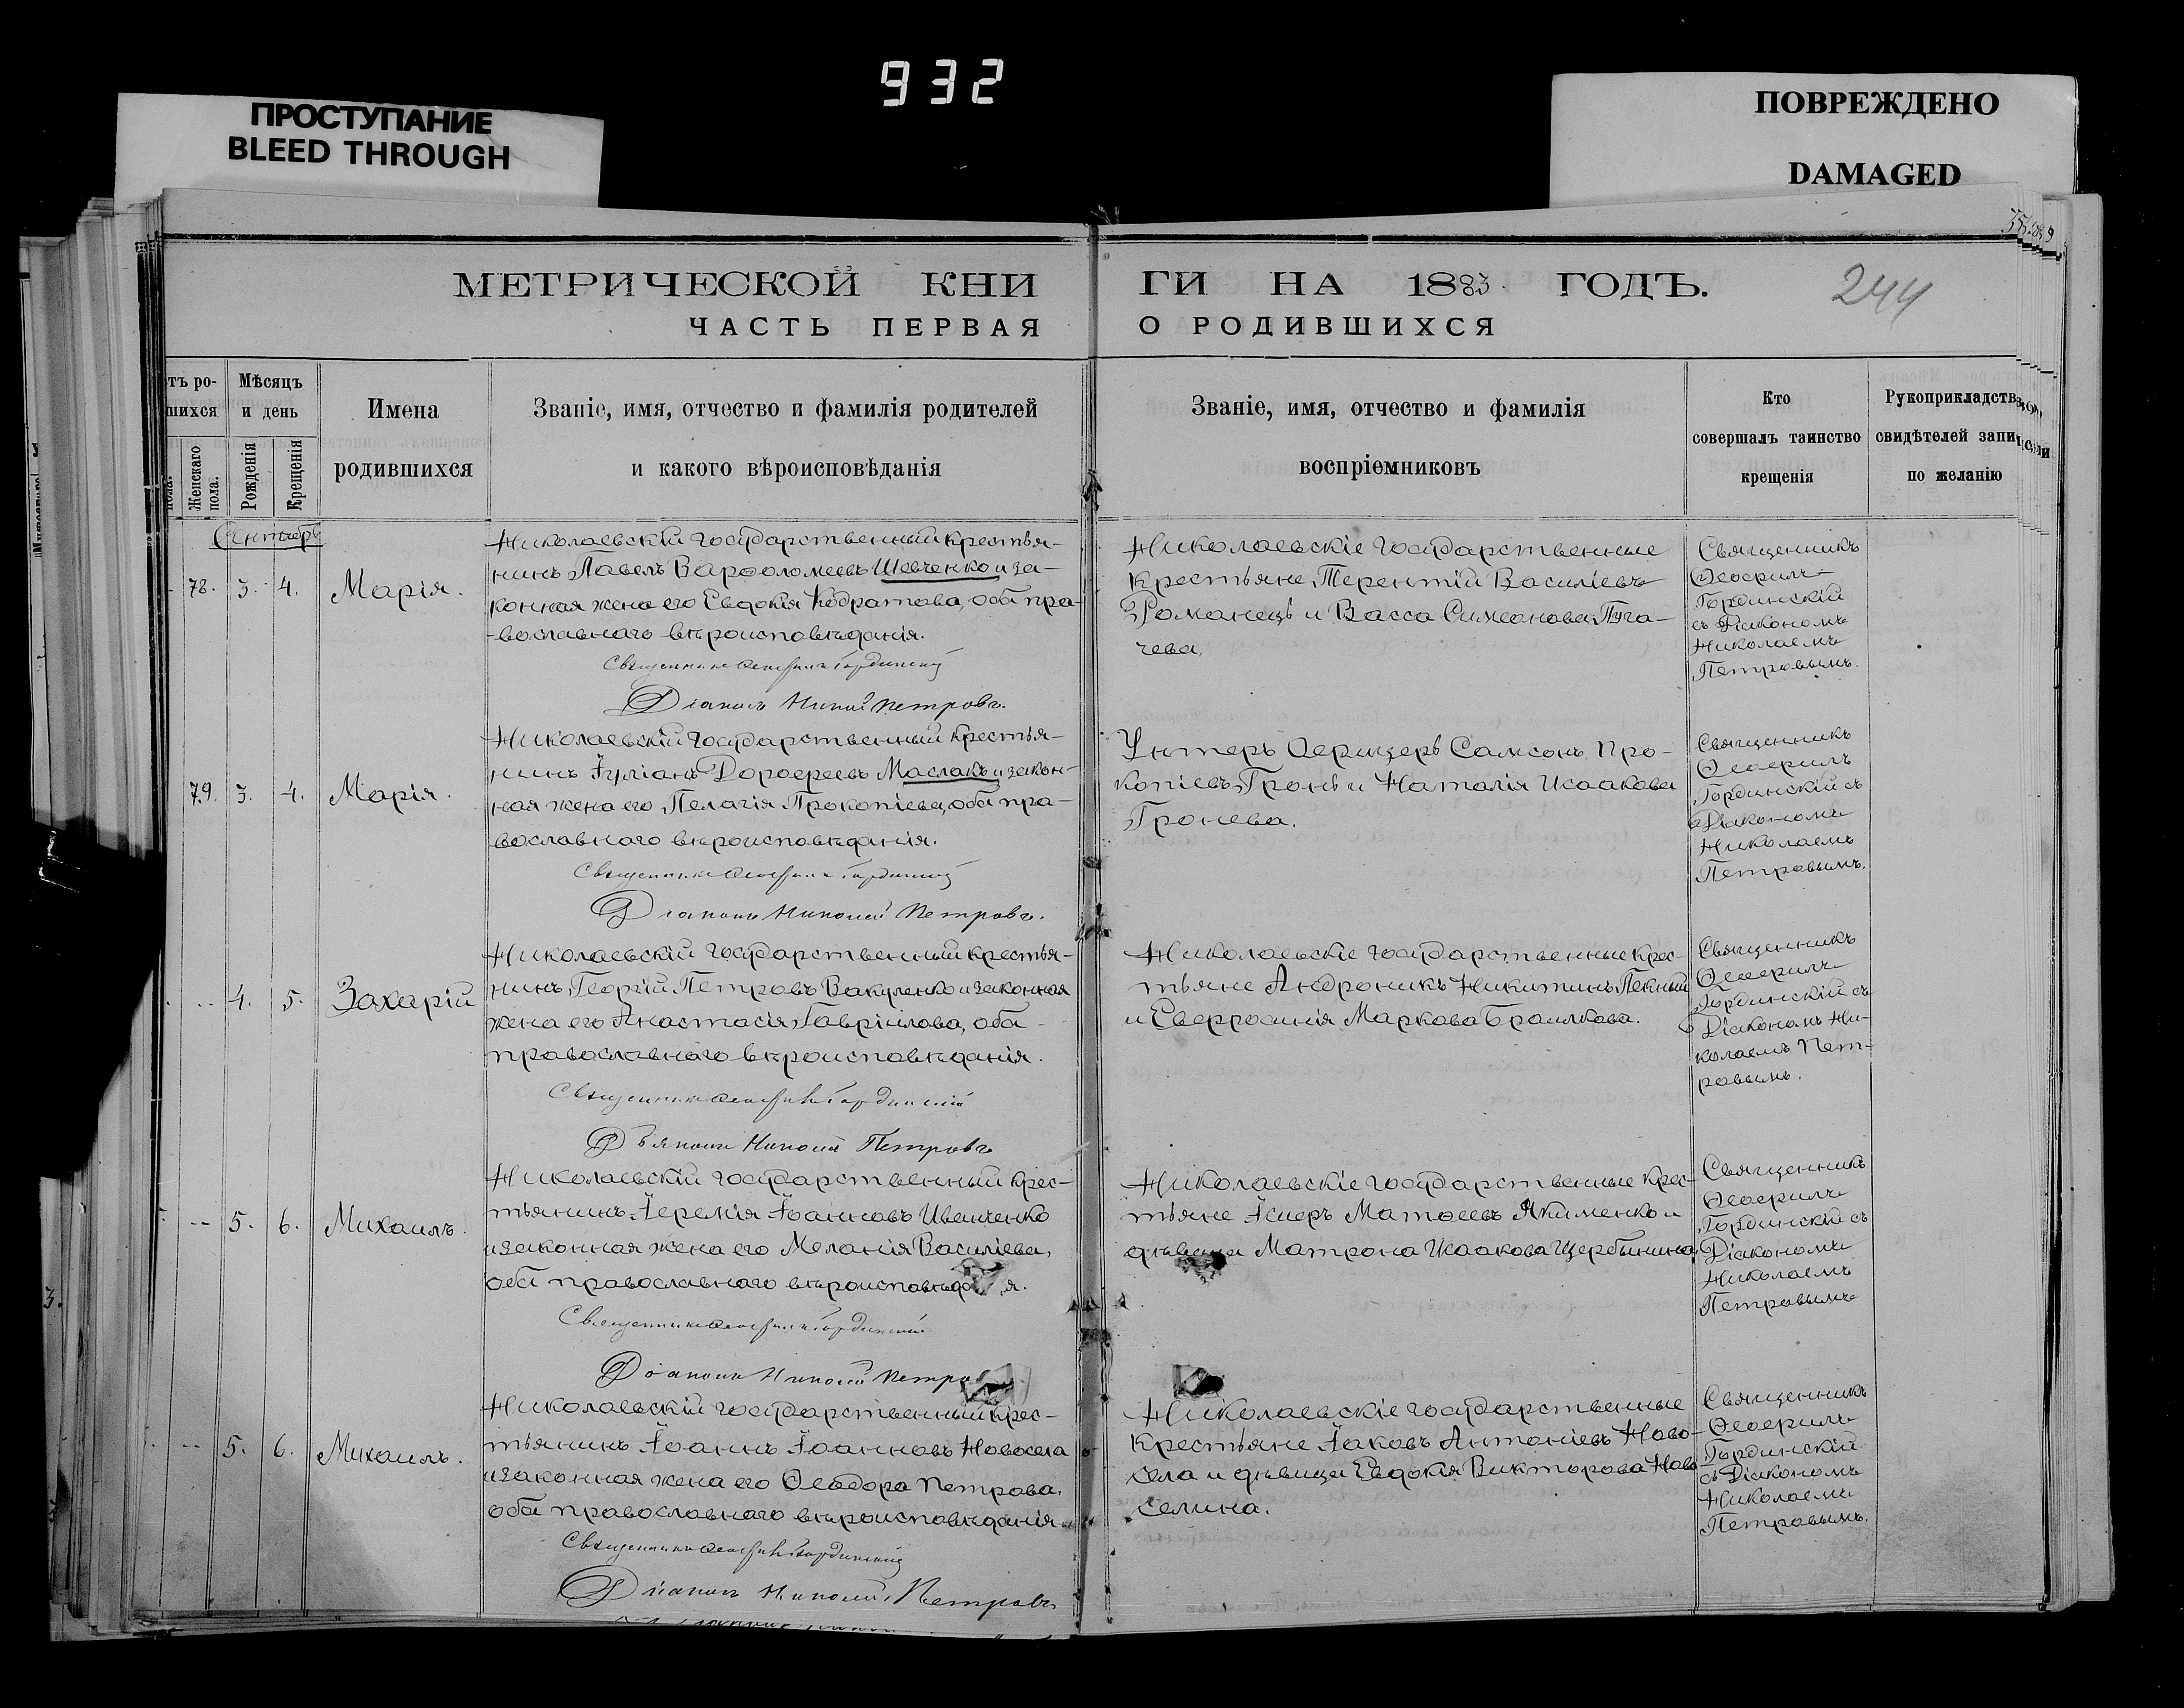 932
ПРОСТУПАНИЕ
BLEED THROUGH
ПОВРЕЖДЕНО
DAMAGED
МЕТРИЧЕСКОЙ КНИ
ГИ НА 1883 ГОДЪ.
244
ЧАСТЬ ПЕРВАЯ
О РОДИВШИХСЯ
тъ ро-
шихся
Женскаго пола.
Мѣсяцъ
и день
Рожденія
Крещенія
Имена
родившихся
Званіе, имя, отчество и фамилія родителей
и какого вѣроисповѣданія
Званіе, имя, отчество и фамилія
воспріемниковъ
Кто
совершалъ таинство
крещенія
Рукоприкладств
свидѣтелей запи
по желанію
Сентябрь
78. 3. 4. Марія.
Николаевскій государственный крестья-
нинъ Павелъ Варѳоломеевъ Шевченко и за-
конная жена его Евдокія Кодратова, оба пра-
-вославнаго вѣроисповѣданія.
Священникъ Ѳеофилъ Гординскій
Діаконъ Николай Петровъ.
Николаевскіе государственные
крестьяне Терентій Василіевъ
Романецъ и Васса Симеонова Пуга-
чева.
Священникъ
Ѳеофилъ
Гординскій
съ Діакономъ
Николаемъ
Петровымъ.
79. 3. 4. Марія.
Николаевскій государственный крестья-
нинъ Іуліанъ Дороѳеевъ Маслакъ и закон-
ная жена его Пелагія Прокопіева, оба пра-
вославнаго вѣроисповѣданія.
Священникъ Ѳеофилъ Гординскій
Діаконъ Николай Петровъ.
Унтеръ Офицеръ Самсонъ Про-
копіевъ Гронь и Наталія Исаакова
Гронева.
Священникъ
Ѳеофилъ
Гординскій съ
Діакономъ
Николаемъ
Петровымъ.
4. 5. Захарій
Николаевскій государственный крестья-
нинъ Георгій Петровъ Вакуленко и законная
жена его Анастасія Гавріилова, оба
православнаго вѣроисповѣданія.
Священникъ Ѳеофилъ Гординскій
Дьяконъ Николай Петровъ
Николаевскіе государственные крес-
тьяне Андроникъ Никитинъ Пекный
и Евфросинія Маркова
Священникъ
Ѳеофилъ
Гординскій съ
Діакономъ Ни-
колаемъ Пет-
ровымъ.
5. 6. Михаилъ.
Николаевскій государственный крес-
тьянинъ Іеремія Іоанновъ Иванченко
и законная жена его Меланія Василіева,
оба православнаго вѣроисповѣда я.
Священникъ Ѳеофилъ Гординскій
Діаконъ Николай Петро
Николаевскіе государственные крес-
тьяне Матѳеевъ Якименко и
дѣвица Матрона Исаакова Щербинина
Священникъ
Ѳеофилъ
Гординскій съ
Діакономъ
Николаемъ
Петровымъ
5. 6. Михаилъ.
Николаевскій государственный крес-
тьянинъ Іоаннъ Іоанновъ Новосела
и законная жена его Ѳеодора Петрова,
оба православнаго вѣроисповѣданія
Священникъ Ѳеофилъ Гординскій
Діаконъ Николай Петровъ
Николаевскіе государственные
крестьяне Іаковъ Антоніевъ Ново-
села и дѣвица Евдокія Викторова Ново
селина.
Священникъ
Ѳеофилъ
Гординскій
съ Діакономъ
Николаемъ
Петровымъ.